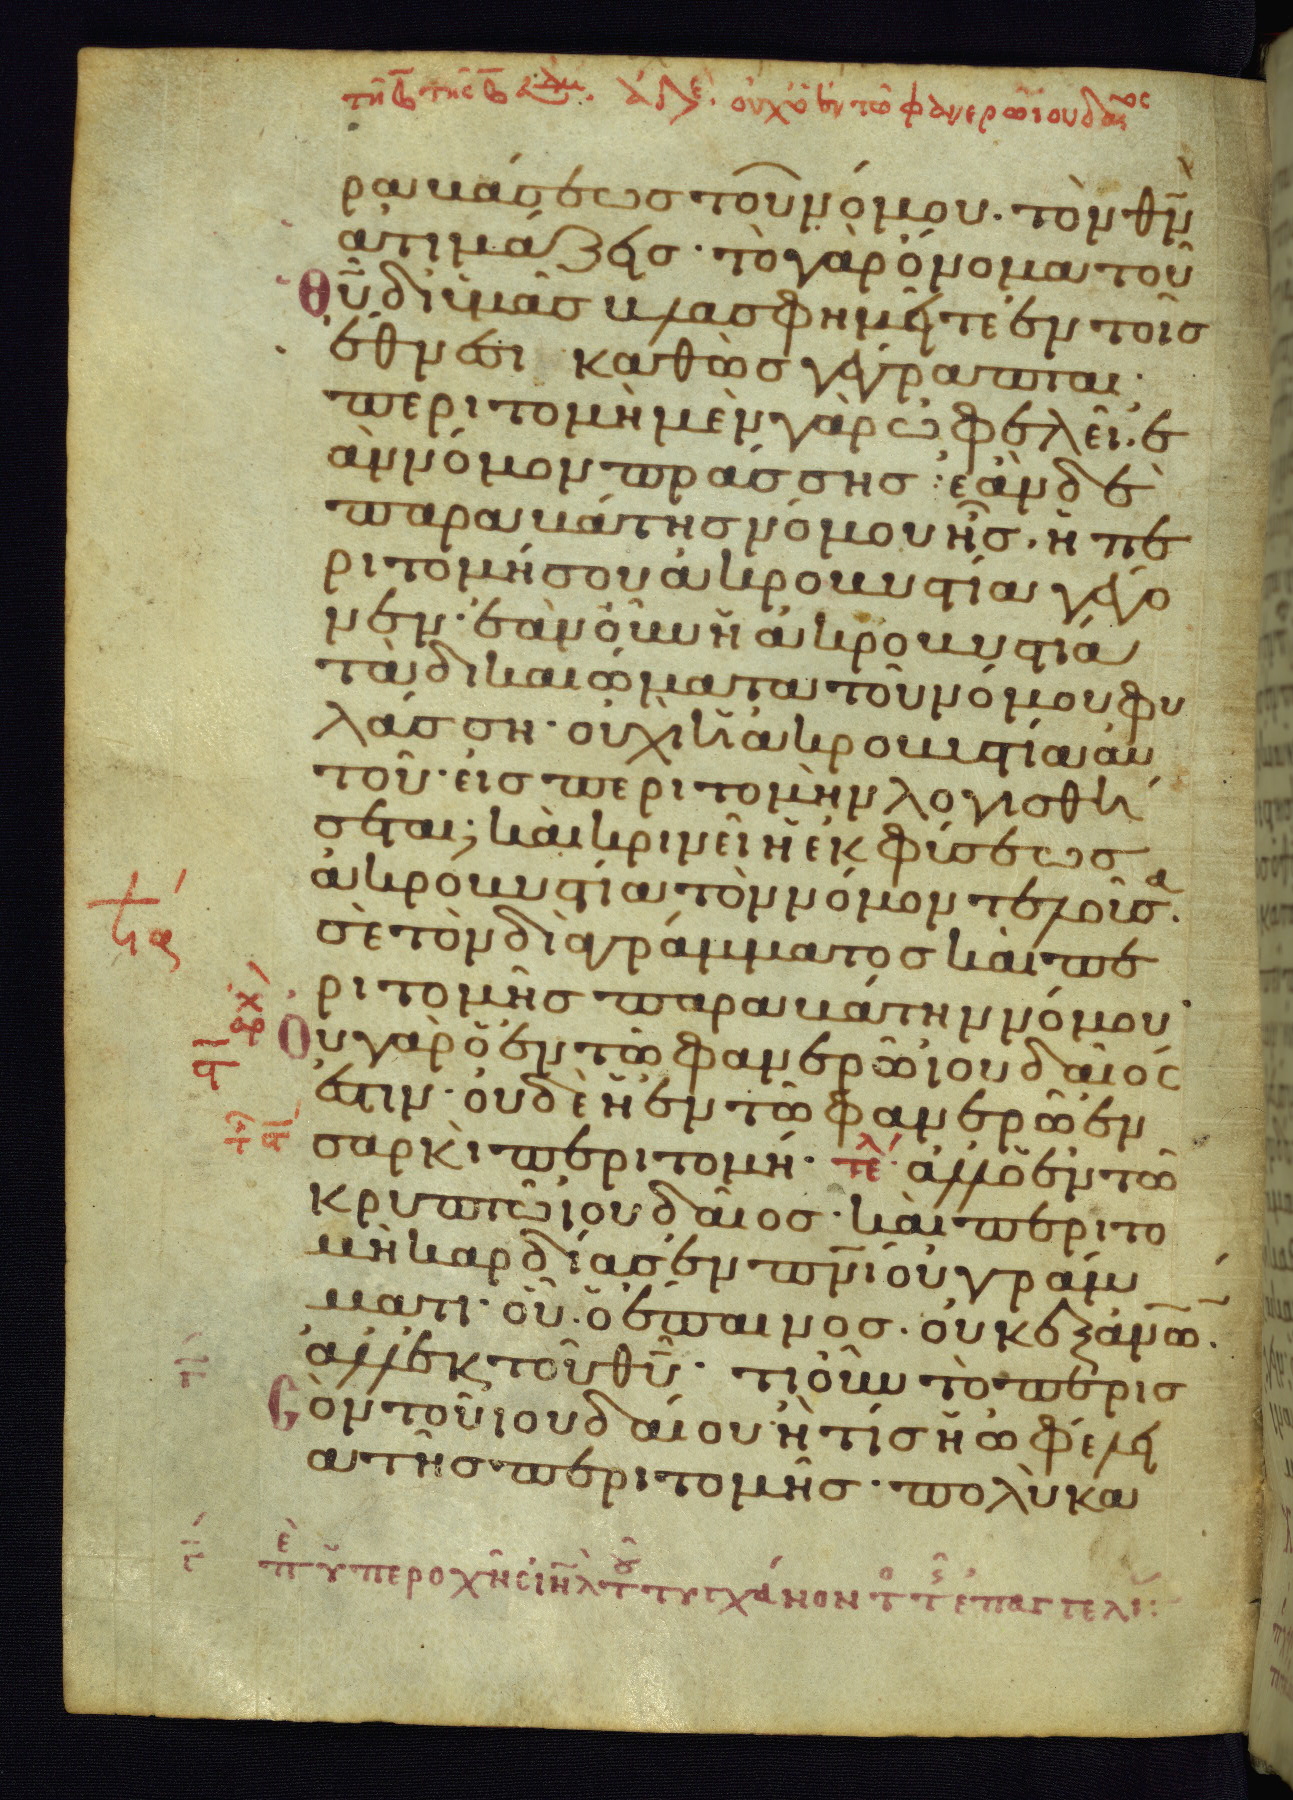 τῇ β τῆς β ἑβδομ. ἀδελ. οὐχ ὁ ἐν τῷ φανερῷ ἰουδαῖος
ραβάσεως τοῦ νόμου· τὸν θν̄
ἀτιμάζεις· τὸ γὰρ ὄνομα τοῦ
θῡ δι ὑμᾶς βλασφημεῖτε ἐν τοῖς
ἔθνεσι καθὼς γέγραπται·
περιτομὴ μὲν γὰρ ὠφελεῖ· ἐ
ὰν νόμον πράσσης· ἐὰν δὲ
παραβάτης νόμου ἦς· ἡ πε
ριτομή σου ἀκροβυστία γέγο
νεν· ἐὰν οὖν ἡ ἀκροβυστία
τὰ δικαιώματα τοῦ νόμου φυ
λάσση· οὐχὶ ἡ ἀκροβυστία αὐ
τοῦ· εἰς περιτομὴν λογισθή
σεται; καὶ κρινεῖ ἡ ἐκ φύσεως
ἀκροβυστία τὸν νόμον τελοῦσα·
σὲ τὸν διὰ γράμματος καὶ πε
ριτομῆς παραβάτην νόμου·
Οὐ γὰρ ὁ ἐν τῷ φανερῷ ἰουδαῖός
ἐστιν· οὐδὲ ἡ ἐν τῷ φανερῷ ἐν
σαρκὶ περιτομή· τελ ἀλλ ὁ ἐν τῷ
κρυπτῷ ἰουδαῖος· καὶ περιτο
μὴ καρδίας ἐν πνῑ οὐ γράμ
ματι· οὗ ὁ ἔπαινος· οὐκ ἐξ ἀνων̄·
ἀλλ ἐκ τοῦ θῡ· τί οὖν τὸ περισ
σὸν τοῦ ἰουδαίου· ἢ τίς ἡ ὠφέλει
α τῆς περιτομῆς· πολὺ κα